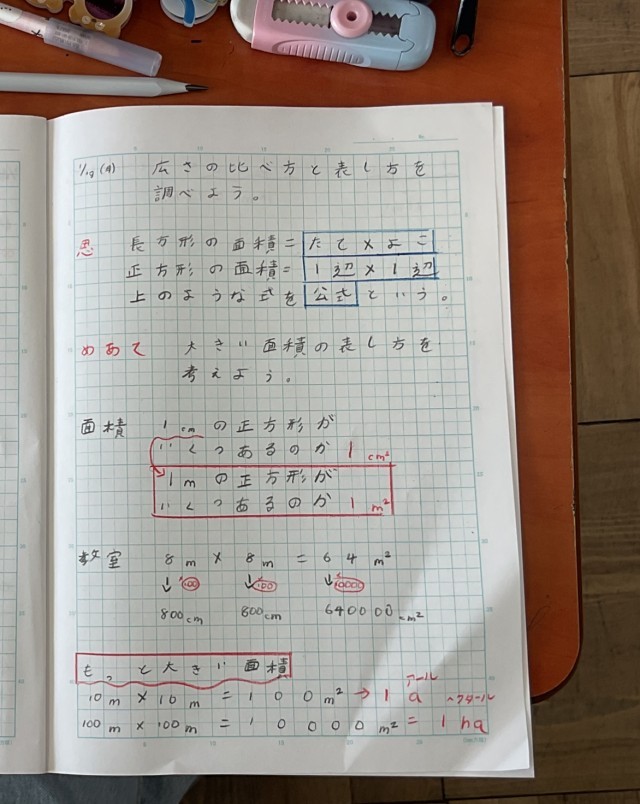 広さの比べ方と表し方を
調べよう。
思 長方形の面積=たて×よこ
正方形の面積=1辺×1辺
上のような式を公式という。
めあて 大きい面積の表し方を
考えよう。
面積 1cmの正方形が
いくつあるのか 1cm²
1mの正方形が
いくつあるのか 1m²
教室 8m×8m=64m²
↓100 ↓100 ↓10000
800cm 800cm 640000cm²
もっと大きい面積
アール
10m×10m=100m²→1a
ヘクタール
100m×100m=10000m²=1ha